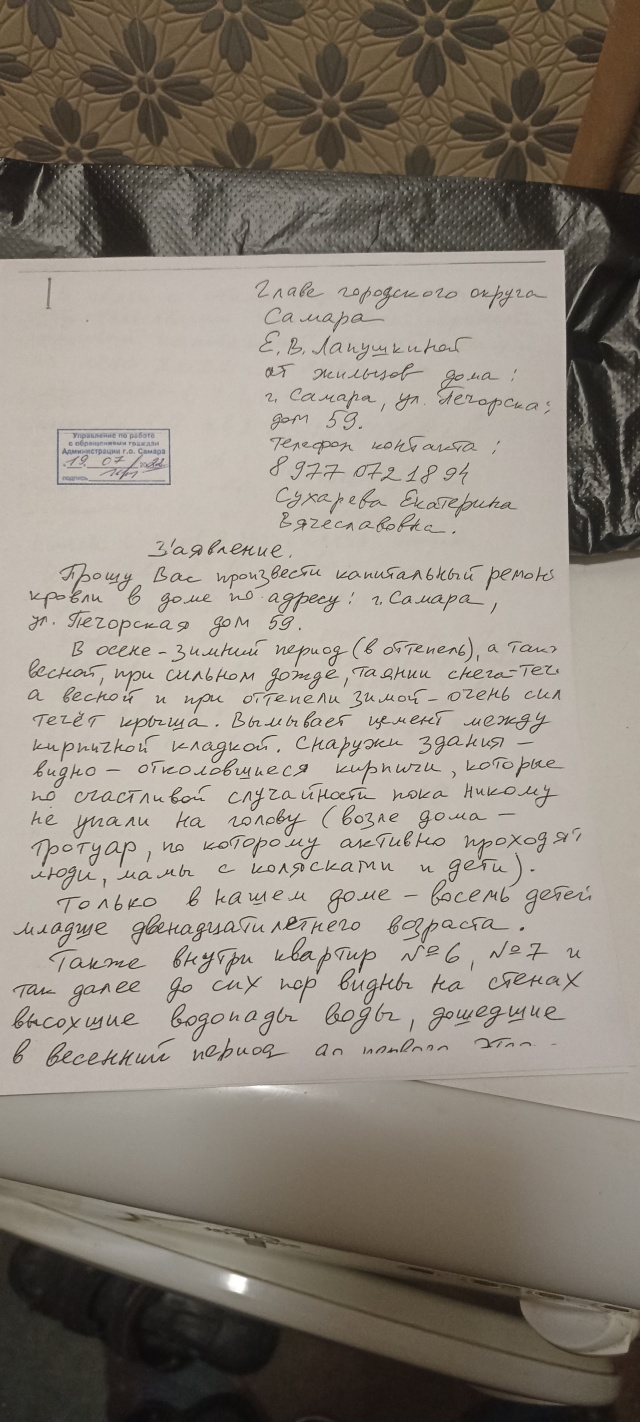 Главе городского округа
Самара
Е. В. Лапушкиной
от жильцов дома:
г. Самара, ул. Печорска
дом 59.
телефон контакта:
8 977 072 18 94
Сухарева Екатерина
Вячеславовна.
Управление по работе
с обращениями граждан
Администрации г.о. Самара
19 07
подпись
Заявление.
Прошу Вас произвести капитальный ремон
кровли в доме по адресу: г. Самара,
ул. Печорская дом 59.
В осене-зимний период (в оттепель), а так
весной, при сильном дожде, таянии снега-теч
а весной и при оттепели зимой - очень сил
течёт крыша. Вымывает цемент между
кирпичной кладкой. Снаружи здания -
видно - отколовшиеся кирпичи, которые
по счастливой случайности пока никому
не упали на голову (возле дома -
тротуар, по которому активно проходят
люди, мамы с колясками и дети).
Только в нашем доме - восемь детей
младше двенадцатилетнего возраста.
Также внутри квартир №6, №7 и
так далее до сих пор видны на стенах
высохшие водопады воды, дошедшие
в весенний период до первого